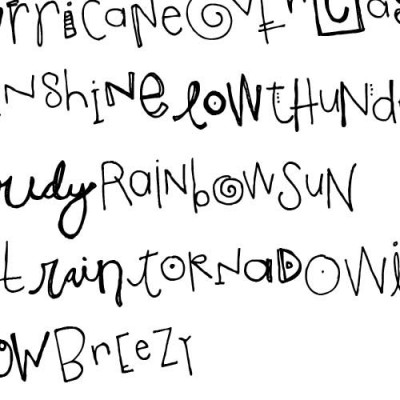 rricaneOverCas
NShiNelOWtHUNd
oudyRaiNbOWSuN
traintORNaDOWi
OWBreeZY